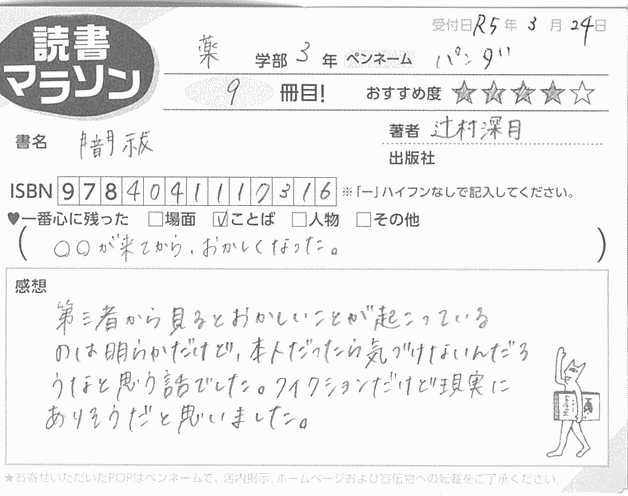 読書
マラソン
受付日R5年3月24日
薬 学部 3年 ペンネーム パンダ
9 冊目! おすすめ度 ★★★★☆
書名 闇祓
著者 辻村深月
出版社
ISBN 9784041117316 ※「ー」ハイフンなしで記入してください。
♥一番心に残った □場面 ☑ことば □人物 □その他
(○○が来てから、おかしくなった。)
感想
第三者から見るとおかしいことが起こっている
のは明らかだけど、本人だったら気づけないんだろ
うなと思う話でした。フィクションだけど現実に
ありそうだと思いました。
★お寄せいただいたPOPはペンネームで、店内掲示、ホームページおよび宣伝物への転載をご了承ください。